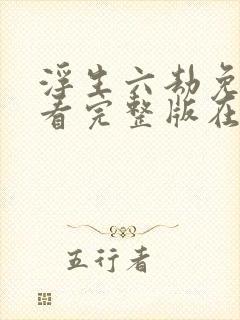 浮生六劫免
看完整版在
五行者